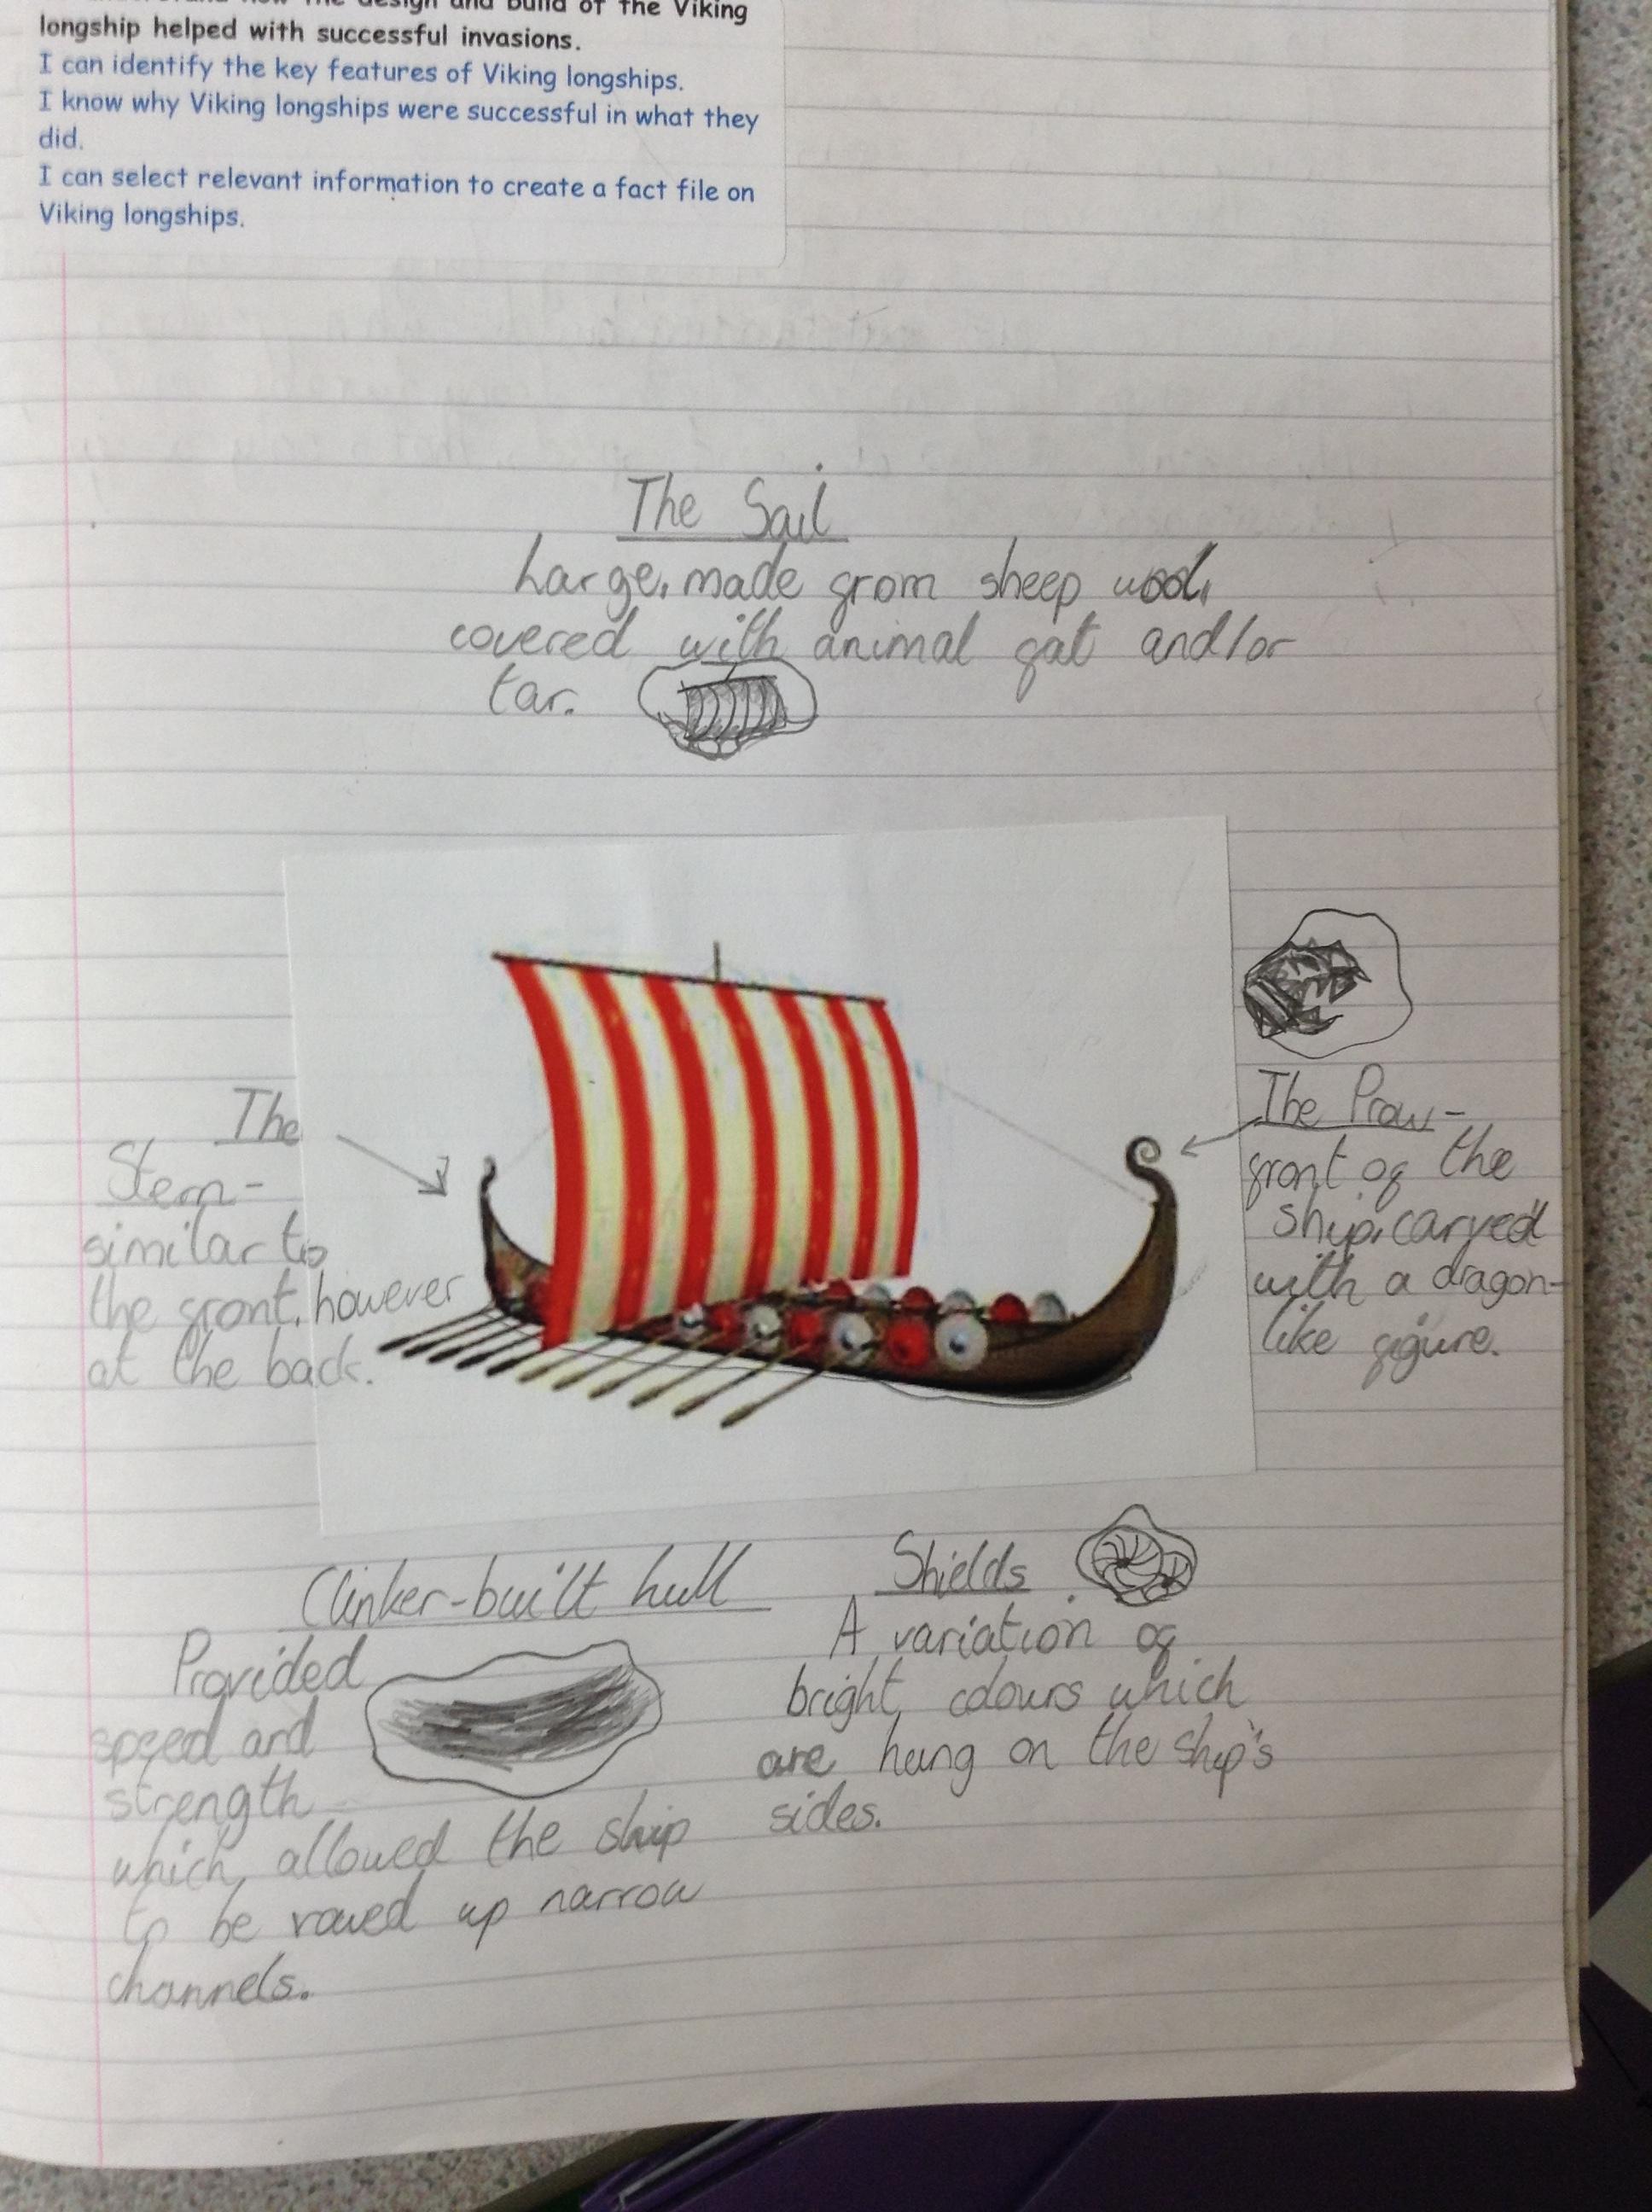 design and build of the Viking
longship helped with successful invasions.
I can identify the key features of Viking longships.
I know why Viking longships were successful in what they
did.
I can select relevant information to create a fact file on
Viking longships.
The Sail
Large, made from sheep wool,
covered with animal fat and/or
tar.
The
Stern-
similar to
the front, however
at the back.
The Prow-
front of the
ship, carved
with a dragon-
like figure.
Clinker-built hull
Provided
speed and
strength
which allowed the ship
to be rowed up narrow
channels.
Shields
A variation of
bright colours which
are hung on the ship's
sides.